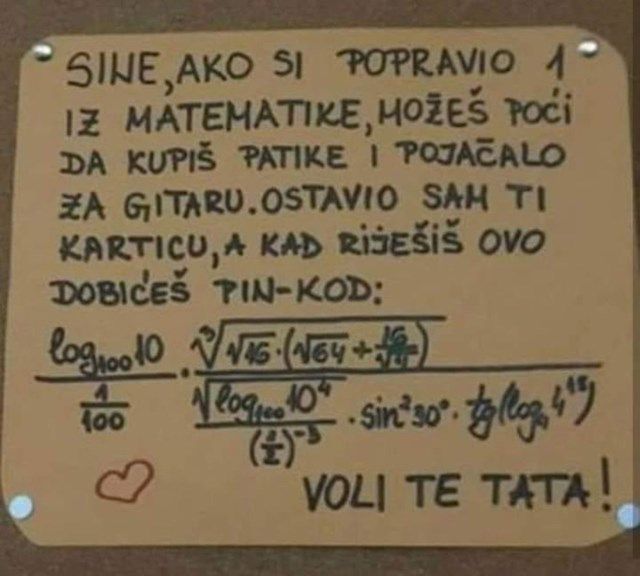 SINE,AKO SI POPRAVIO 1
IZ MATEMATIKE,MOŽEŠ POĆI
DA KUPIŠ PATIKE I POJAČALO
ZA GITARU.OSTAVIO SAM TI
KARTICU,A KAD RIJEŠIŠ OVO
DOBIĆEŠ PIN-KOD:
log₁₀₀10 · ³√(√16·(√64+16/√4))
1/100
√log₁₀₀10⁴ · sin²30° · tg(log₄4
(1/2)⁻³
VOLI TE TATA!